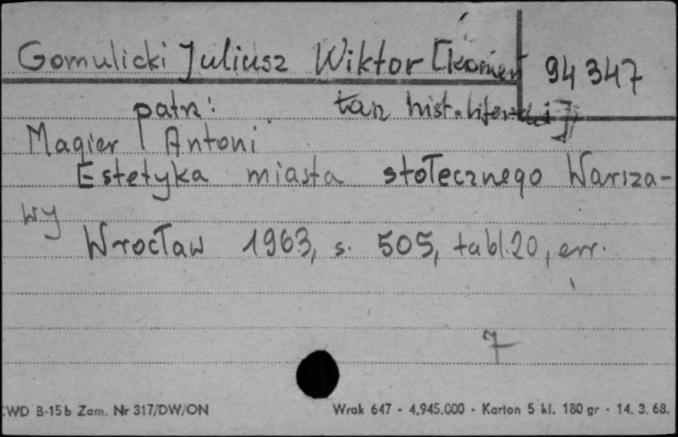 Gomulicki Juliusz Wiktor [komen 94 347
patrz: tarz hist.-literacki]
Magier Antoni
Estetyka miasta stołecznego Warsza-
wy
Wrocław 1963, s. 505, tabl. 20, err.
7
CWD B-15b Zam. Nr 317/DW/ON Wrak 647 - 4.945.000 - Karton 5 kl. 180 gr - 14. 3. 68.